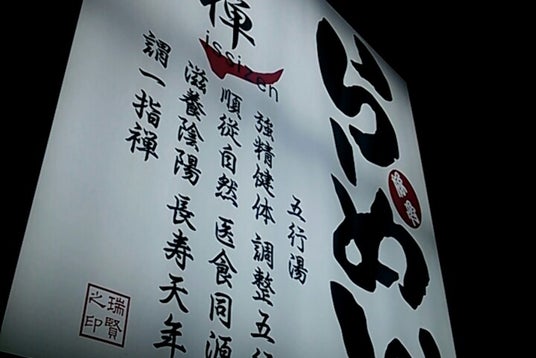 らーめん
禅
issizen
五行湯
強精健体 調整五行
順従自然 医食同源
滋養陰陽 長寿天年
謂一指禅
瑞賢之印